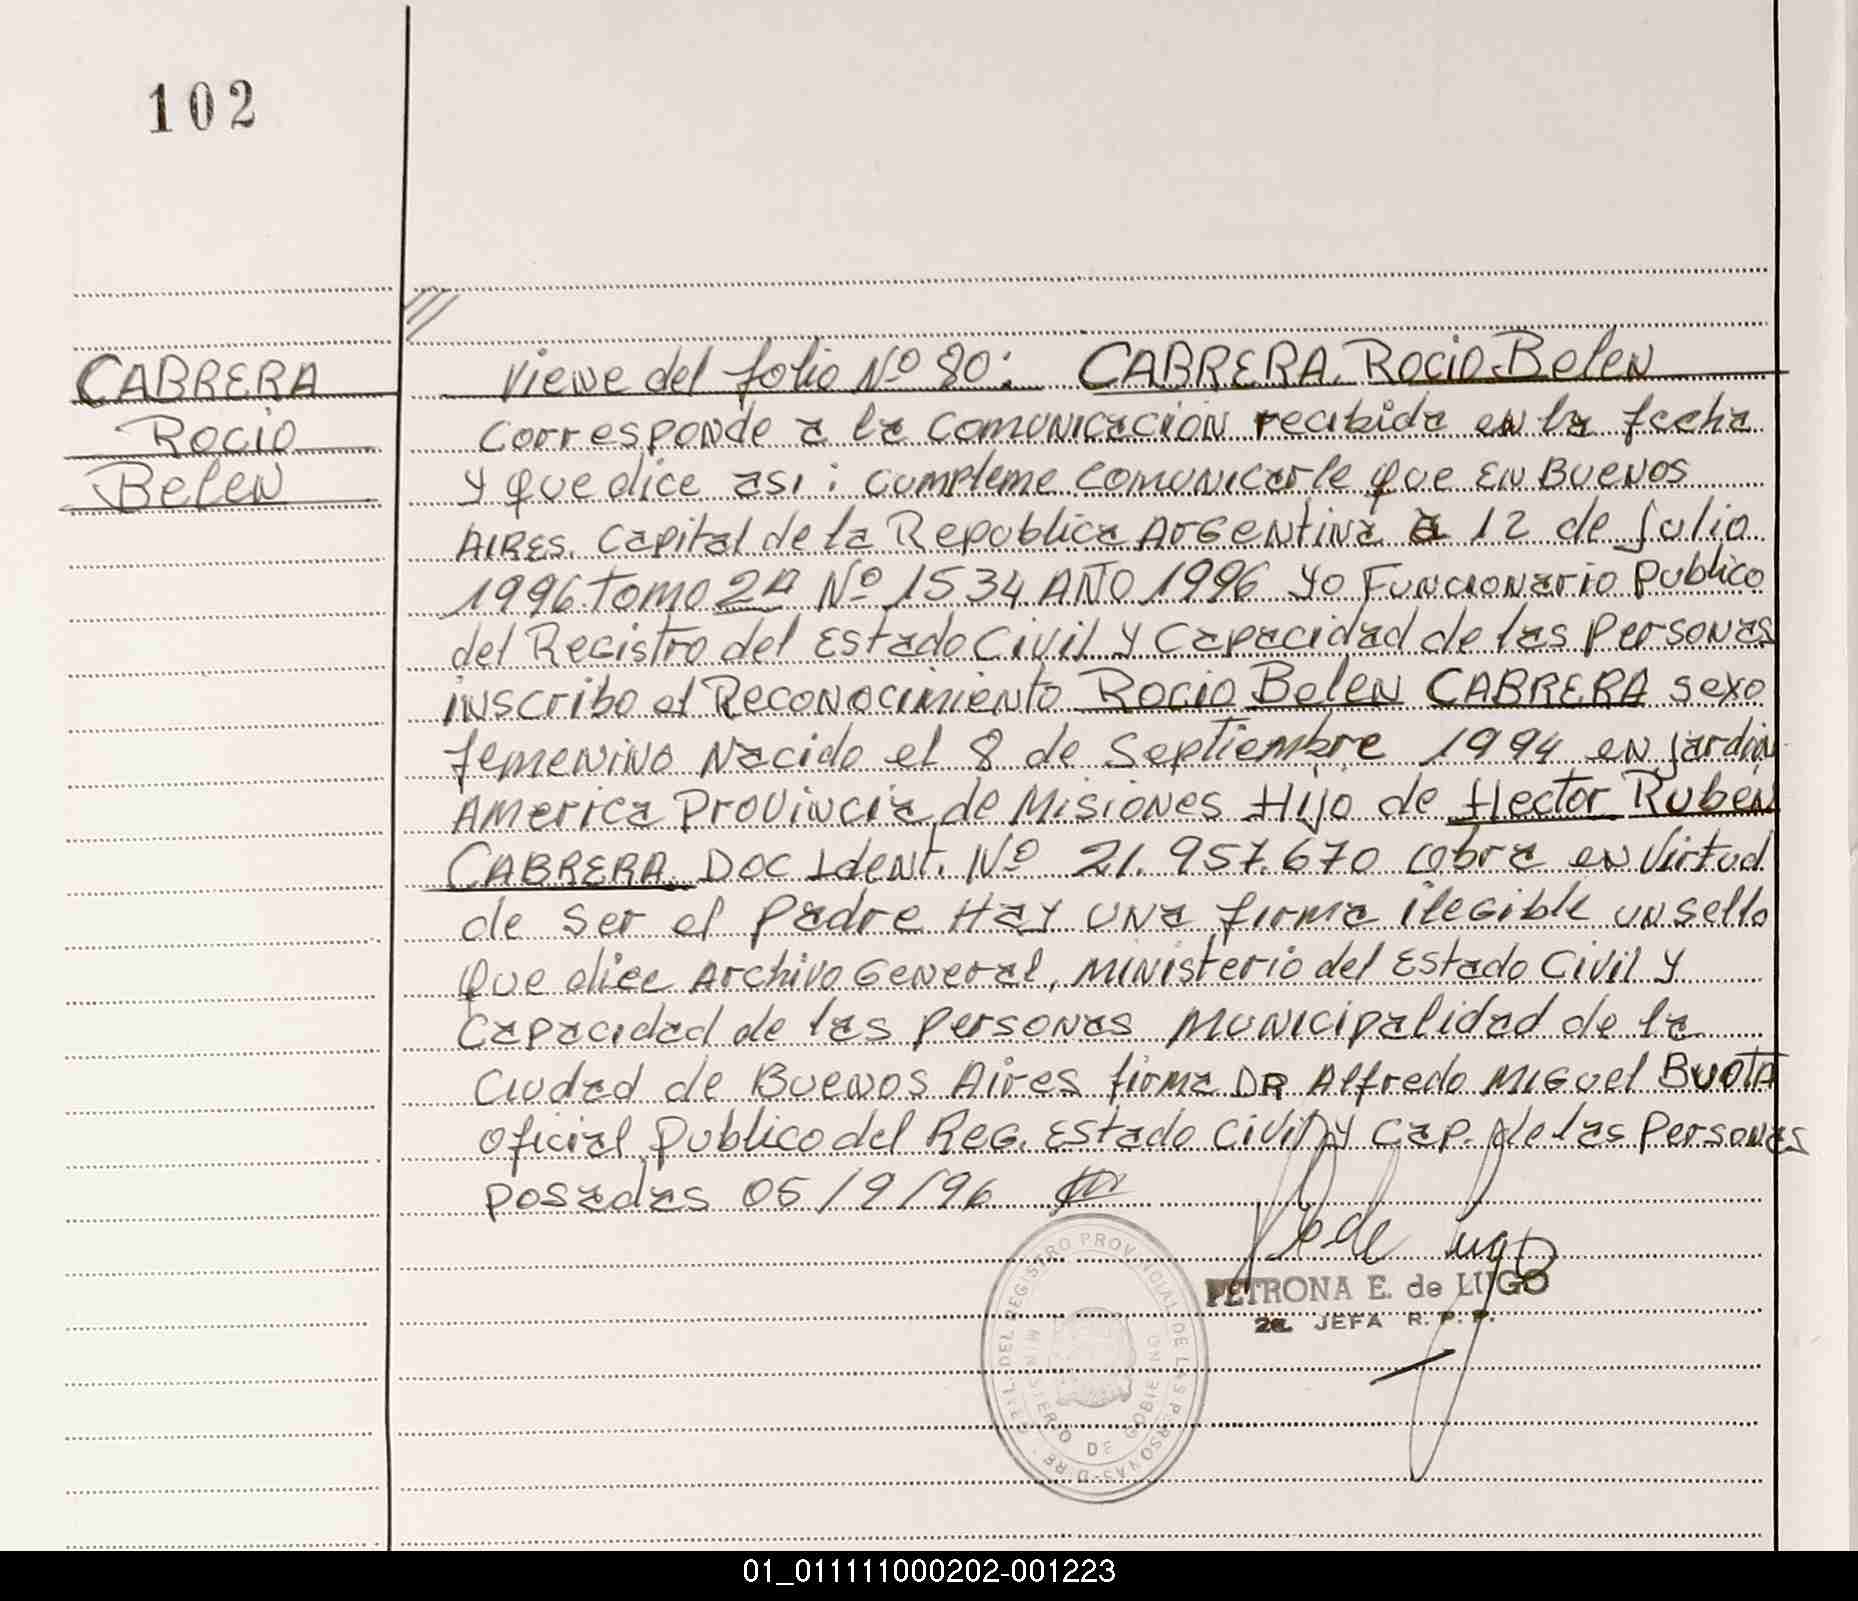 102
CABRERA
Rocio
Belen
Viene del folio Nº 80: CABRERA, Rocio Belen
Corresponde a la comunicación recibida en la fecha
y que dice asi: cumpleme comunicarle que en Buenos
Aires. Capital de la Republica Argentina a 12 de Julio
1996 Tomo 2A Nº 1534 Año 1996 yo Funcionario Publico
del Registro del Estado Civil y Capacidad de las Personas
inscribo el Reconocimiento Rocio Belen CABRERA sexo
femenino Nacido el 8 de Septiembre 1994 en Jardin
America Provincia de Misiones Hijo de Hector Ruben
CABRERA Doc Ident. Nº 21.957.670 obra en Virtud
de ser el padre Hay una firma ilegible un sello
Que dice Archivo General, Ministerio del Estado Civil y
Capacidad de las personas Municipalidad de la
Ciudad de Buenos Aires firma DR Alfredo Miguel
oficial Publico del Reg. Estado Civil y Cap. de las Personas
posadas 05/9/96
de Lugo
PETRONA E. de LUGO
2a. JEFA R. P. P.
GRAL. DEL REGISTRO PROVINCIAL DE LAS PERSONAS
MINISTERIO DE GOBIERNO
01_011111000202-001223